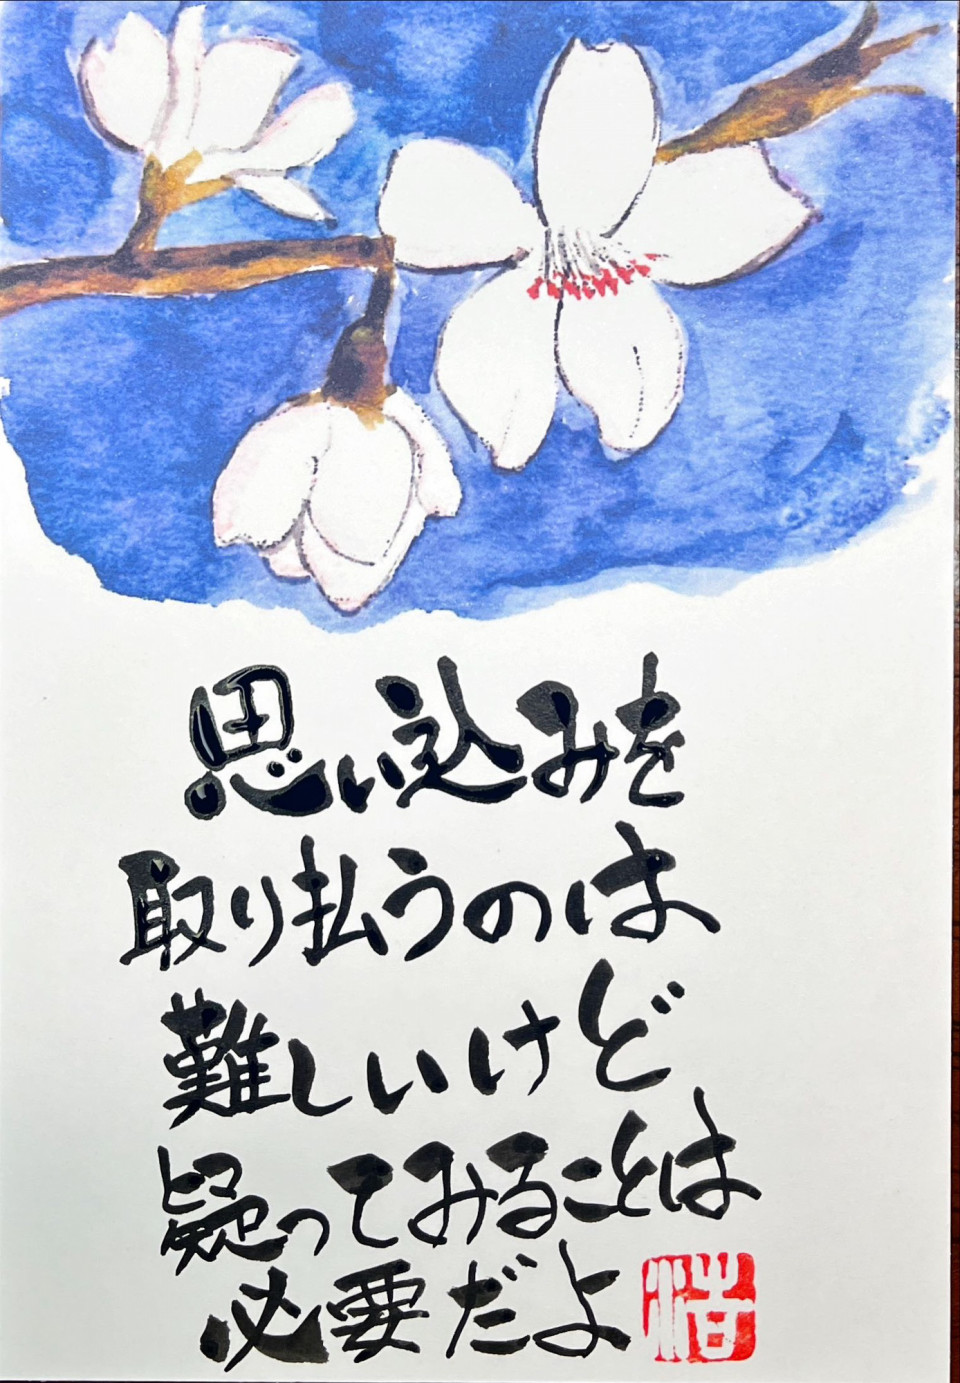 思い込みを
取り払うのは
難しいけど
疑ってみることは
必要だよ